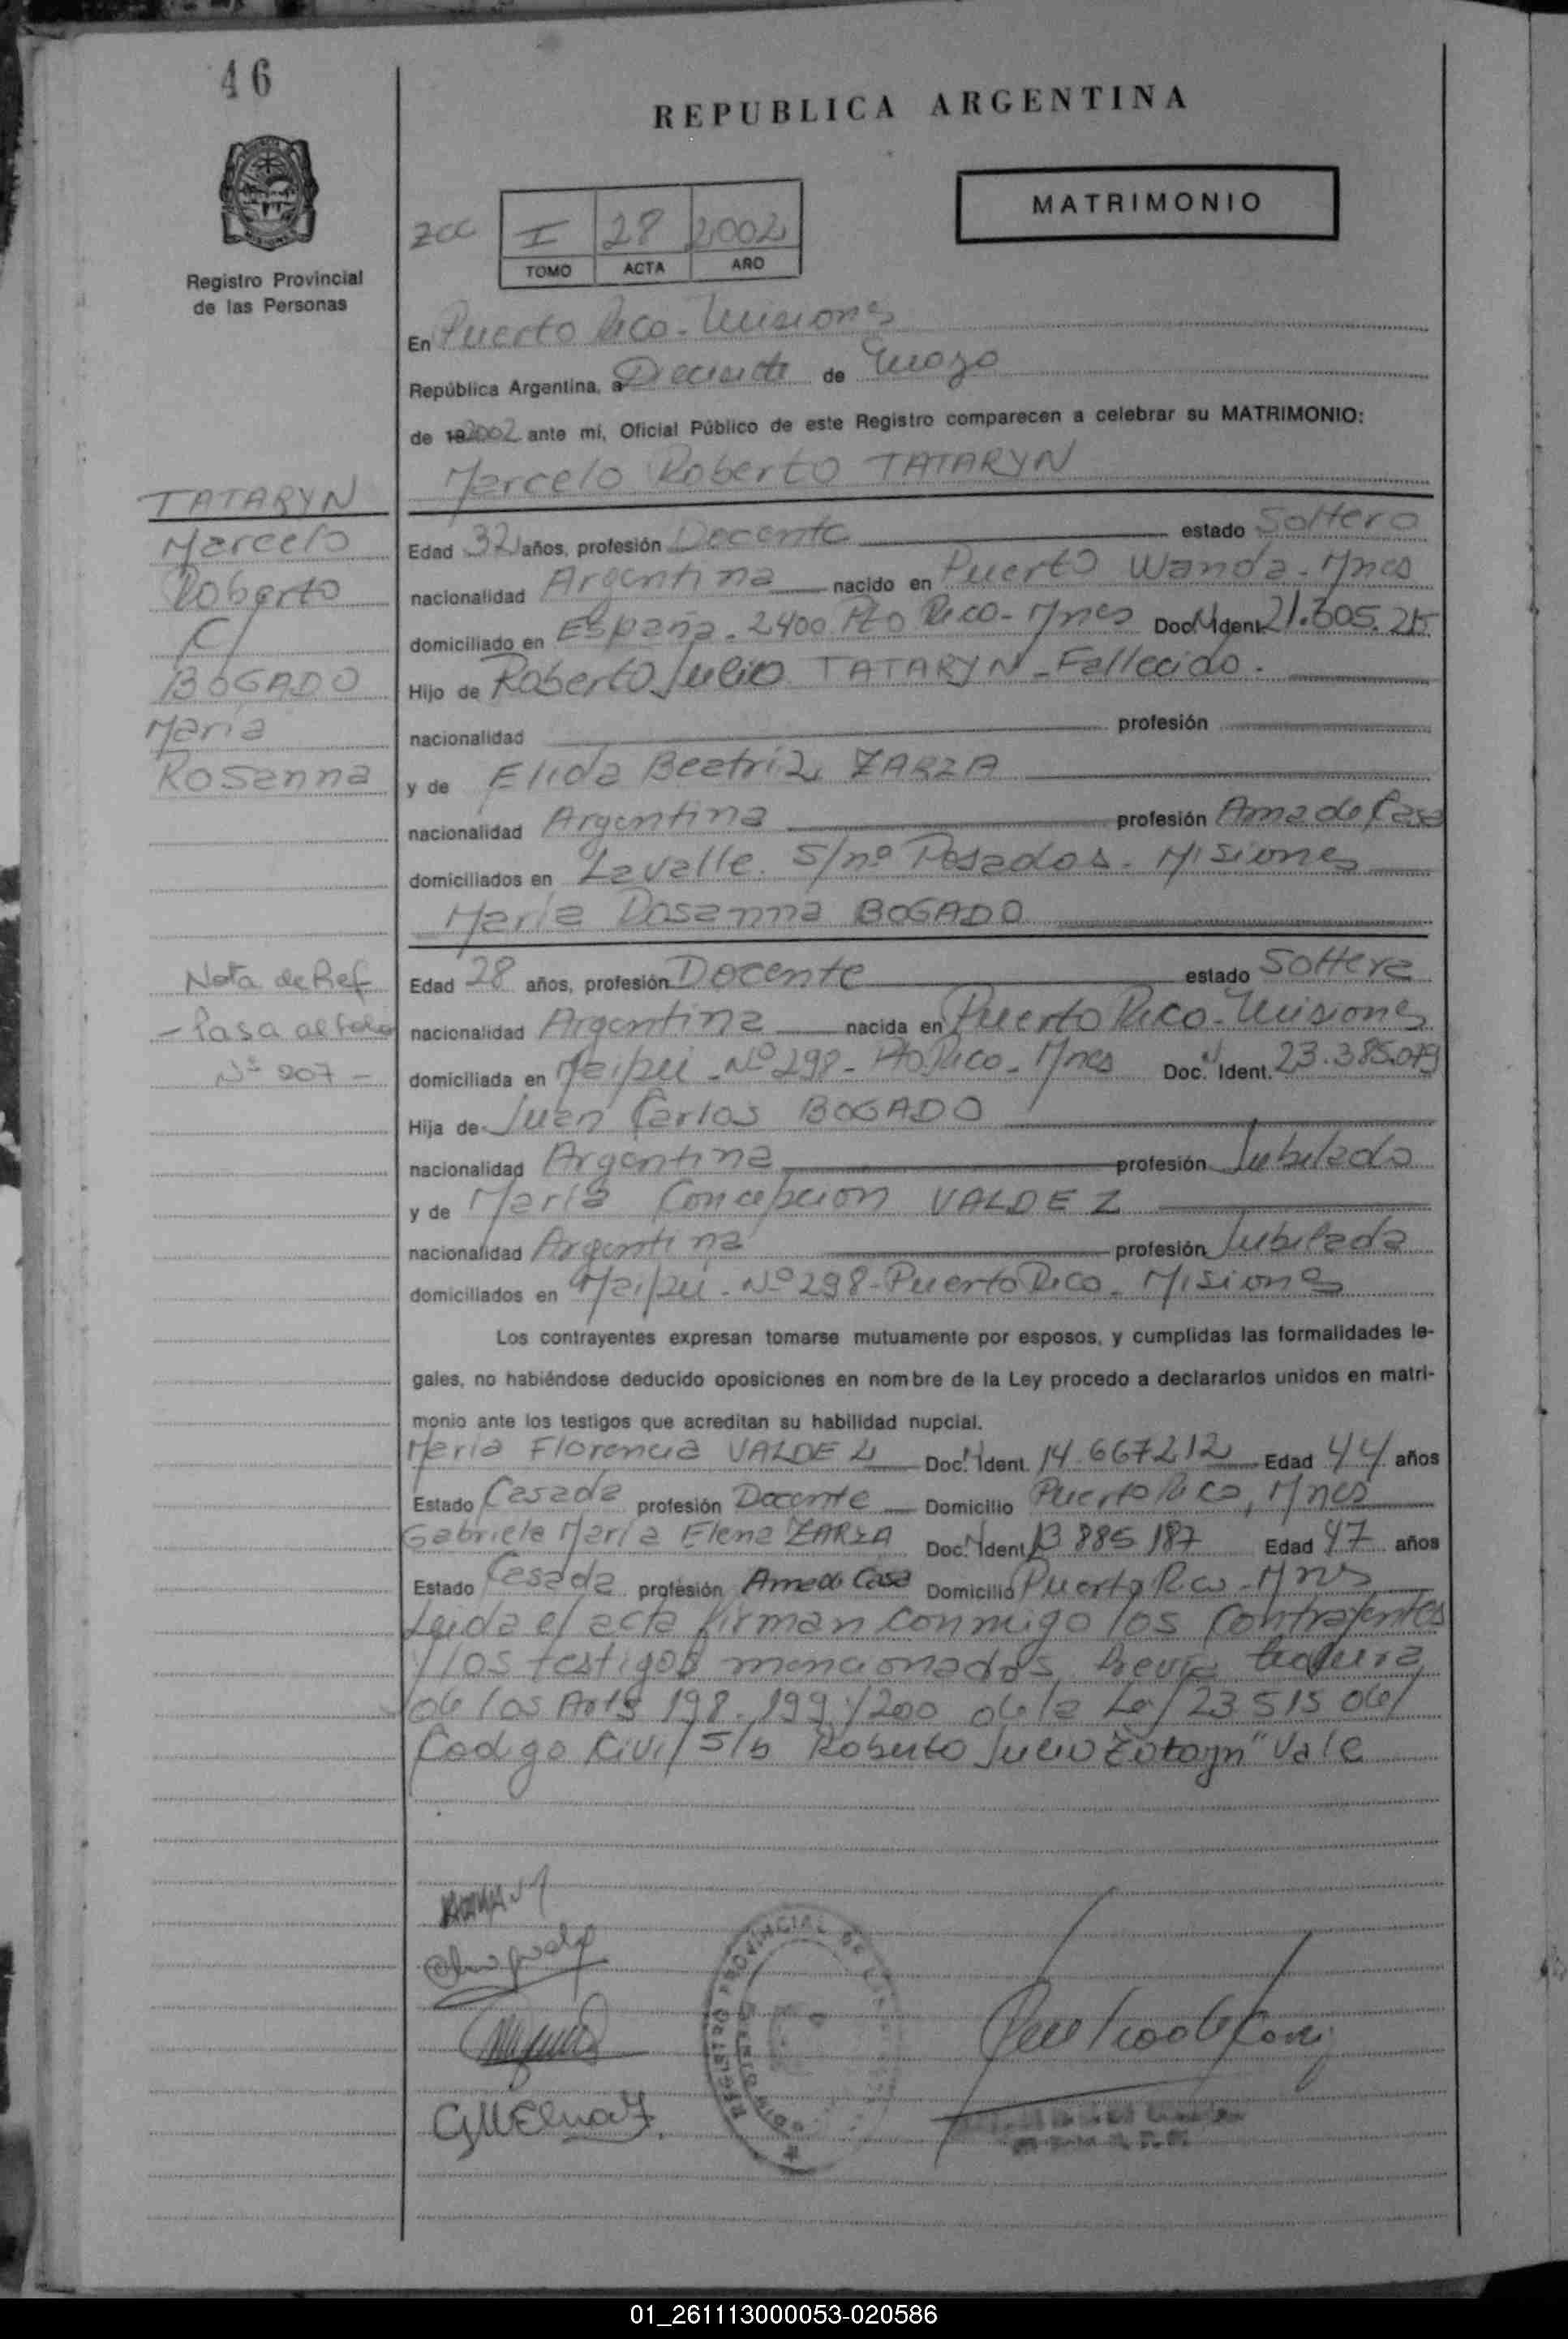 46
REPUBLICA ARGENTINA
MATRIMONIO
Registro Provincial
de las Personas
I 28 2002
TOMO ACTA AÑO
En Puerto Rico - Misiones
República Argentina, a Diecisiete de Mayo
de 19 2002 ante mí, Oficial Público de este Registro comparecen a celebrar su MATRIMONIO:
Marcelo Roberto TATARYN
TATARYN
Marcelo
Roberto
C/
BOGADO
Maria
Rosanna
Edad 32 años, profesión Docente estado Soltero
nacionalidad Argentina nacido en Puerto Wanda - Mnes
domiciliado en España - 2400 Pto Rico - Mnes Doc. Ident.
Hijo de Roberto Julio TATARYN - Fallecido.
nacionalidad profesión
y de Elida Beatriz ZARZA
nacionalidad Argentina profesión Ama de Casa
domiciliados en Lavalle. S/nº Posadas - Misiones
Maria Rosanna BOGADO
Nota de Ref
- Pasa al folio
Nº 207 -
Edad 28 años, profesión Docente estado Soltera
nacionalidad Argentina nacida en Puerto Rico - Misiones
domiciliada en Maipú - Nº 298 - Pto Rico - Mnes Doc. Ident. 23.385.079
Hija de Juan Carlos BOGADO
nacionalidad Argentina profesión Jubilado
y de Maria Concepcion VALDEZ
nacionalidad Argentina profesión Jubilada
domiciliados en Maipú - Nº 298 - Puerto Rico - Misiones
Los contrayentes expresan tomarse mutuamente por esposos, y cumplidas las formalidades le-
gales, no habiéndose deducido oposiciones en nombre de la Ley procedo a declararlos unidos en matri-
monio ante los testigos que acreditan su habilidad nupcial.
Maria Florencia VALDEZ Doc. Ident. 14.667212 Edad 44 años
Estado Casada profesión Docente Domicilio Puerto Rico, Mnes
Gabriela Maria Elena ZARZA Doc. Ident. 13 885 187 Edad 47 años
Estado Casada profesión Ama de Casa Domicilio Puerto Rico - Mnes
Leida el acta firman conmigo los contrayentes
y los testigos mencionados, previa lectura
de los Arts 198. 199 y 200 de la Ley 23.515 del
Codigo Civil S/b Roberto Julio "Vale
01_261113000053-020586